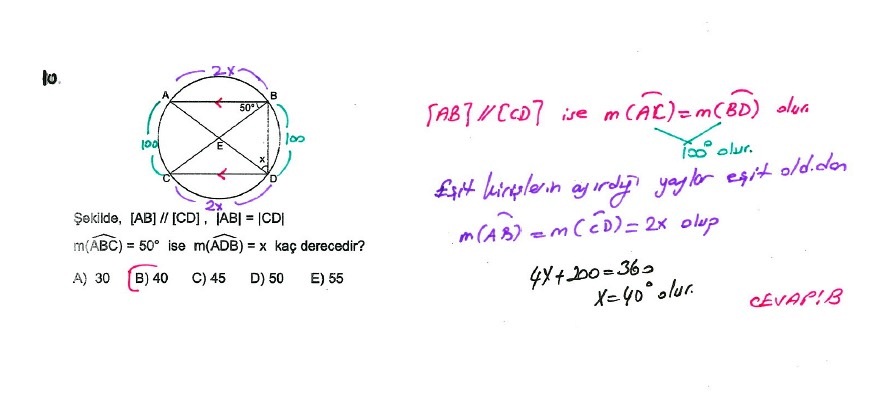 10.
2x
A
B
50°
100
100
E
x
C
D
2x
Şekilde, [AB] // [CD] , |AB| = |CD|
m(ABC) = 50° ise m(ADB) = x kaç derecedir?
A) 30 B) 40 C) 45 D) 50 E) 55
[AB] // [CD] ise m(AC)=m(BD) olur.
100° olur.
Eşit kirişlerin ayırdığı yaylar eşit old.dan
m(AB) = m(CD) = 2x olup
4x+200=360
x=40° olur.
CEVAP: B